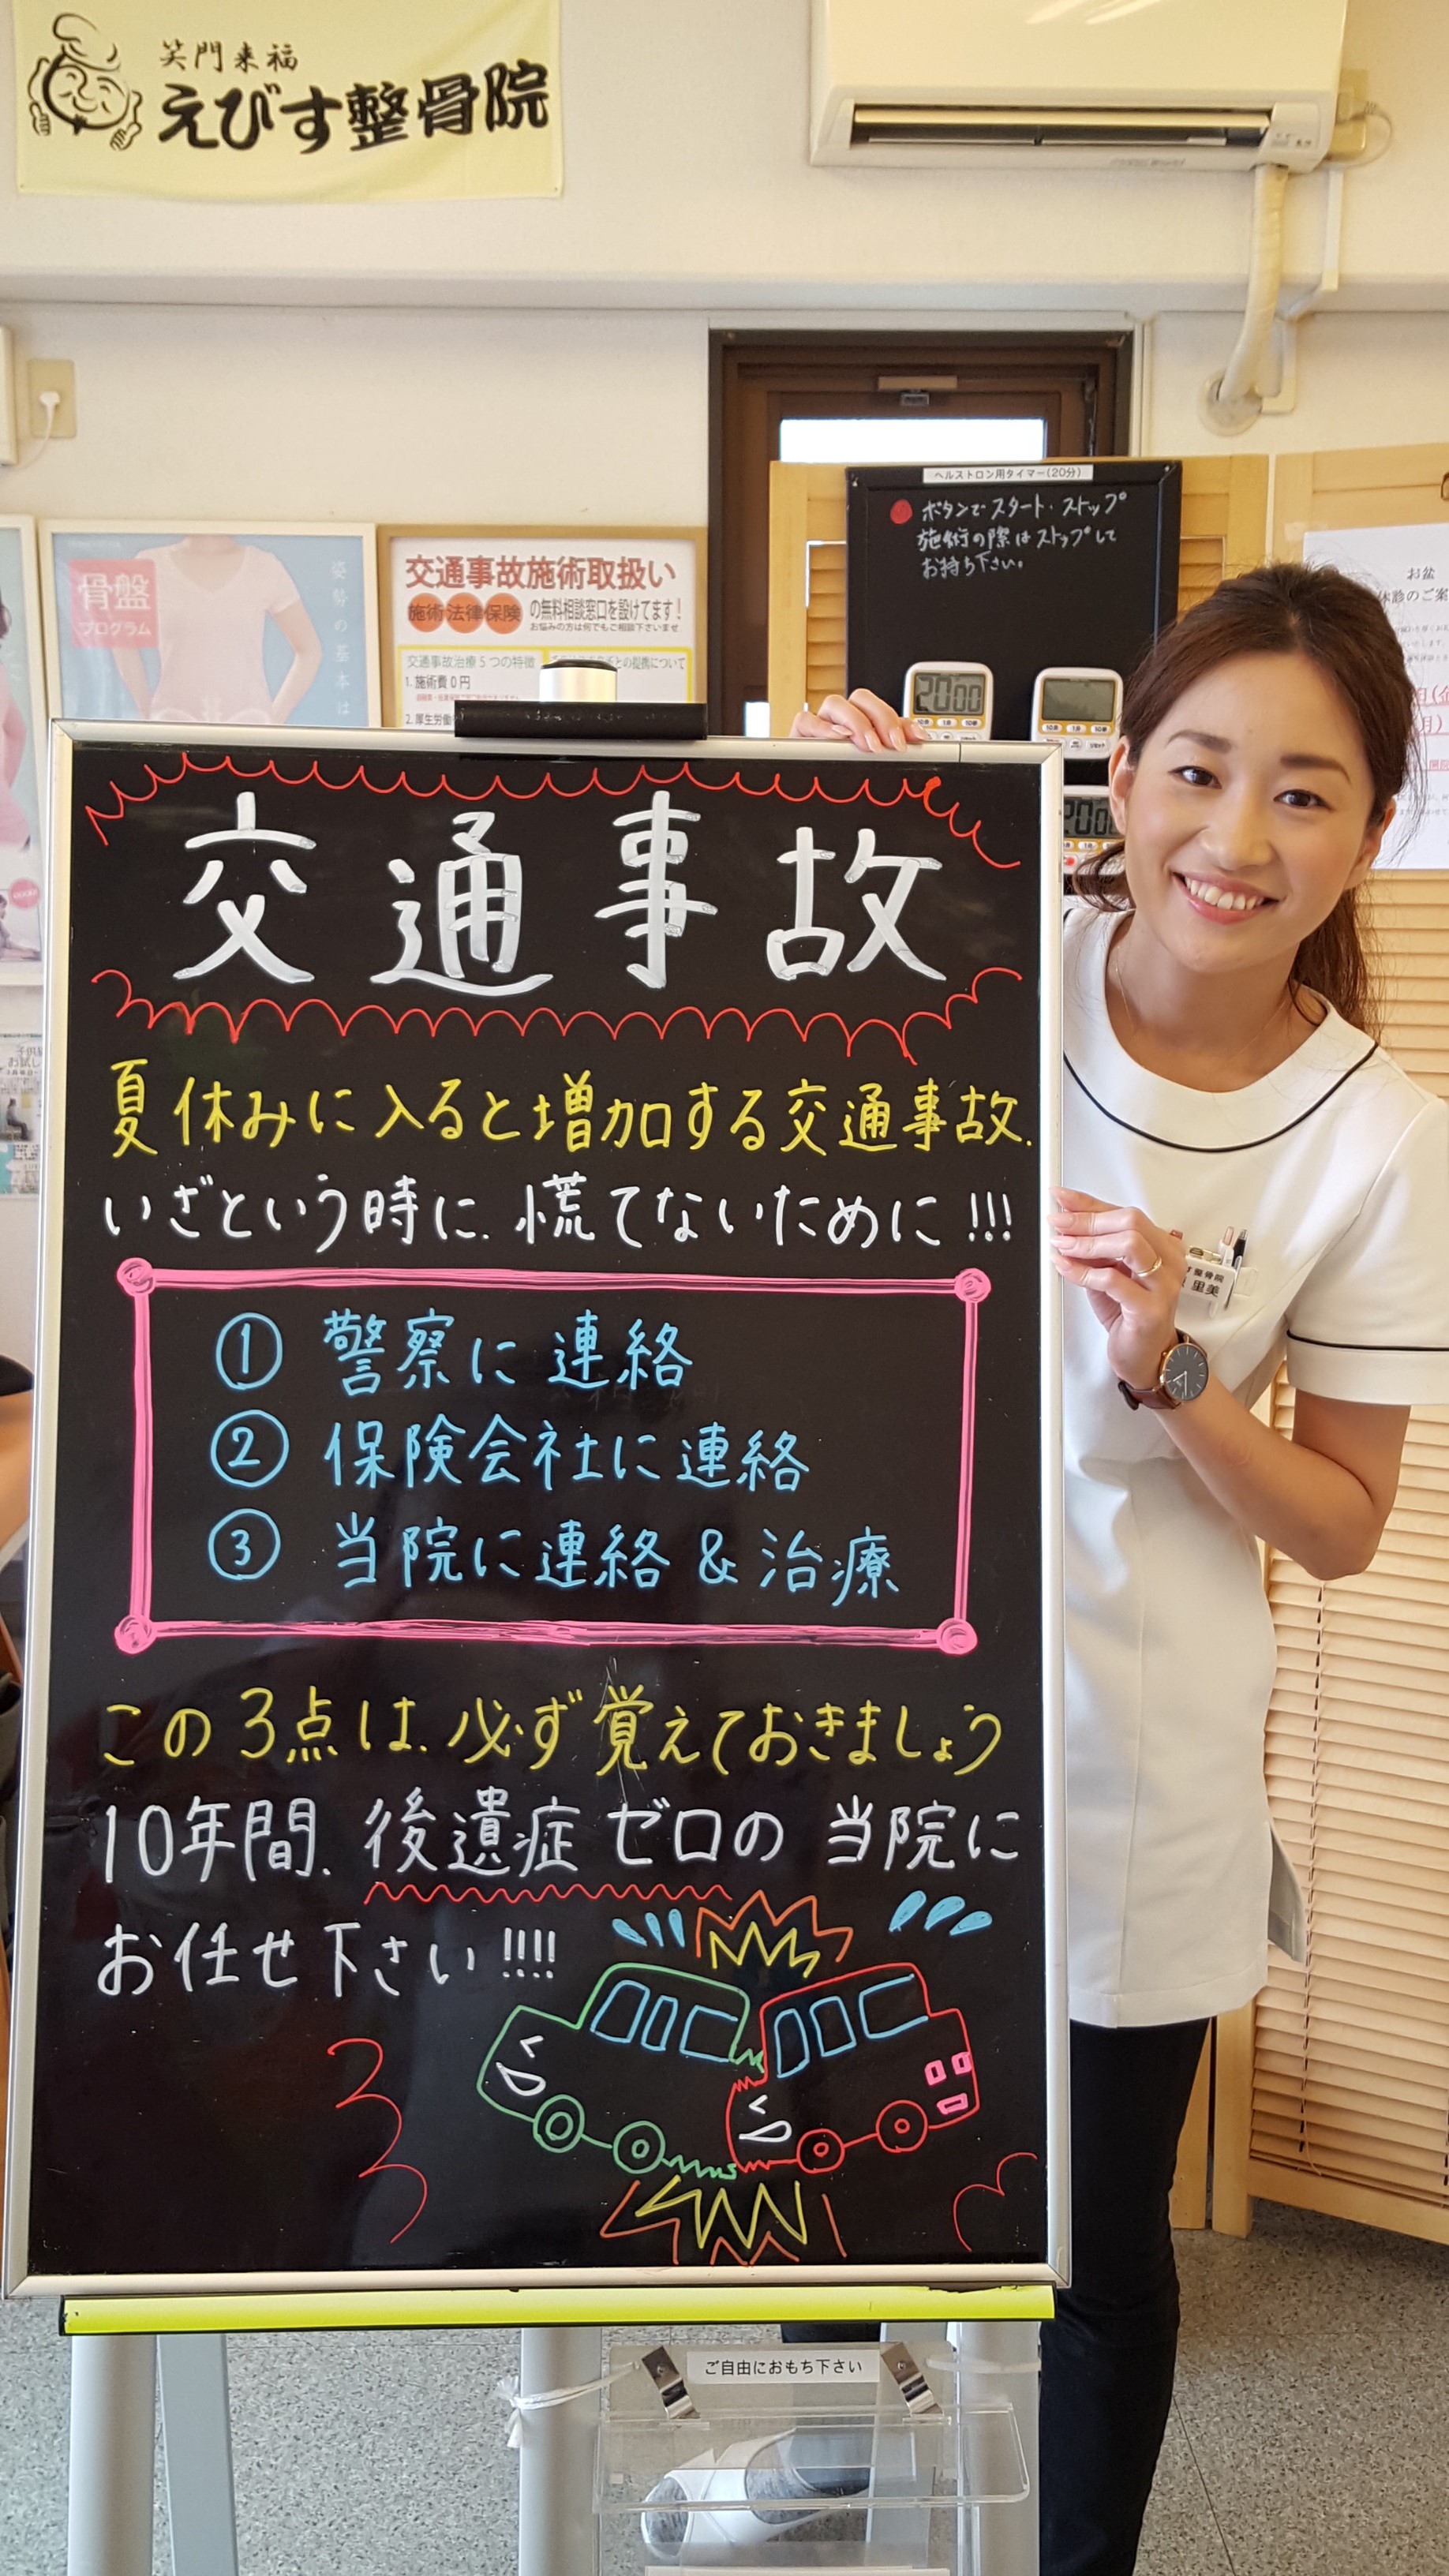 笑門来福
えびす整骨院
ヘルストロン用タイマー(20分)
ボタンでスタート・ストップ
施術の際はストップして
お持ち下さい。
骨盤
プログラム
姿勢の基本は
交通事故施術取扱い
施術 法律 保険 の無料相談窓口を設けてます!
お悩みの方は何でもご相談下さいませ
交通事故治療5つの特徴
との提携について
1. 施術費0円
2. 厚生労働
お盆
休診のご案
20:00
交通事故
夏休みに入ると増加する交通事故.
いざという時に.慌てないために!!!
① 警察に連絡
② 保険会社に連絡
③ 当院に連絡 & 治療
この3点は.必ず覚えておきましょう
10年間.後遺症ゼロの当院に
お任せ下さい!!!!
整骨院
里美
ご自由におもち下さい